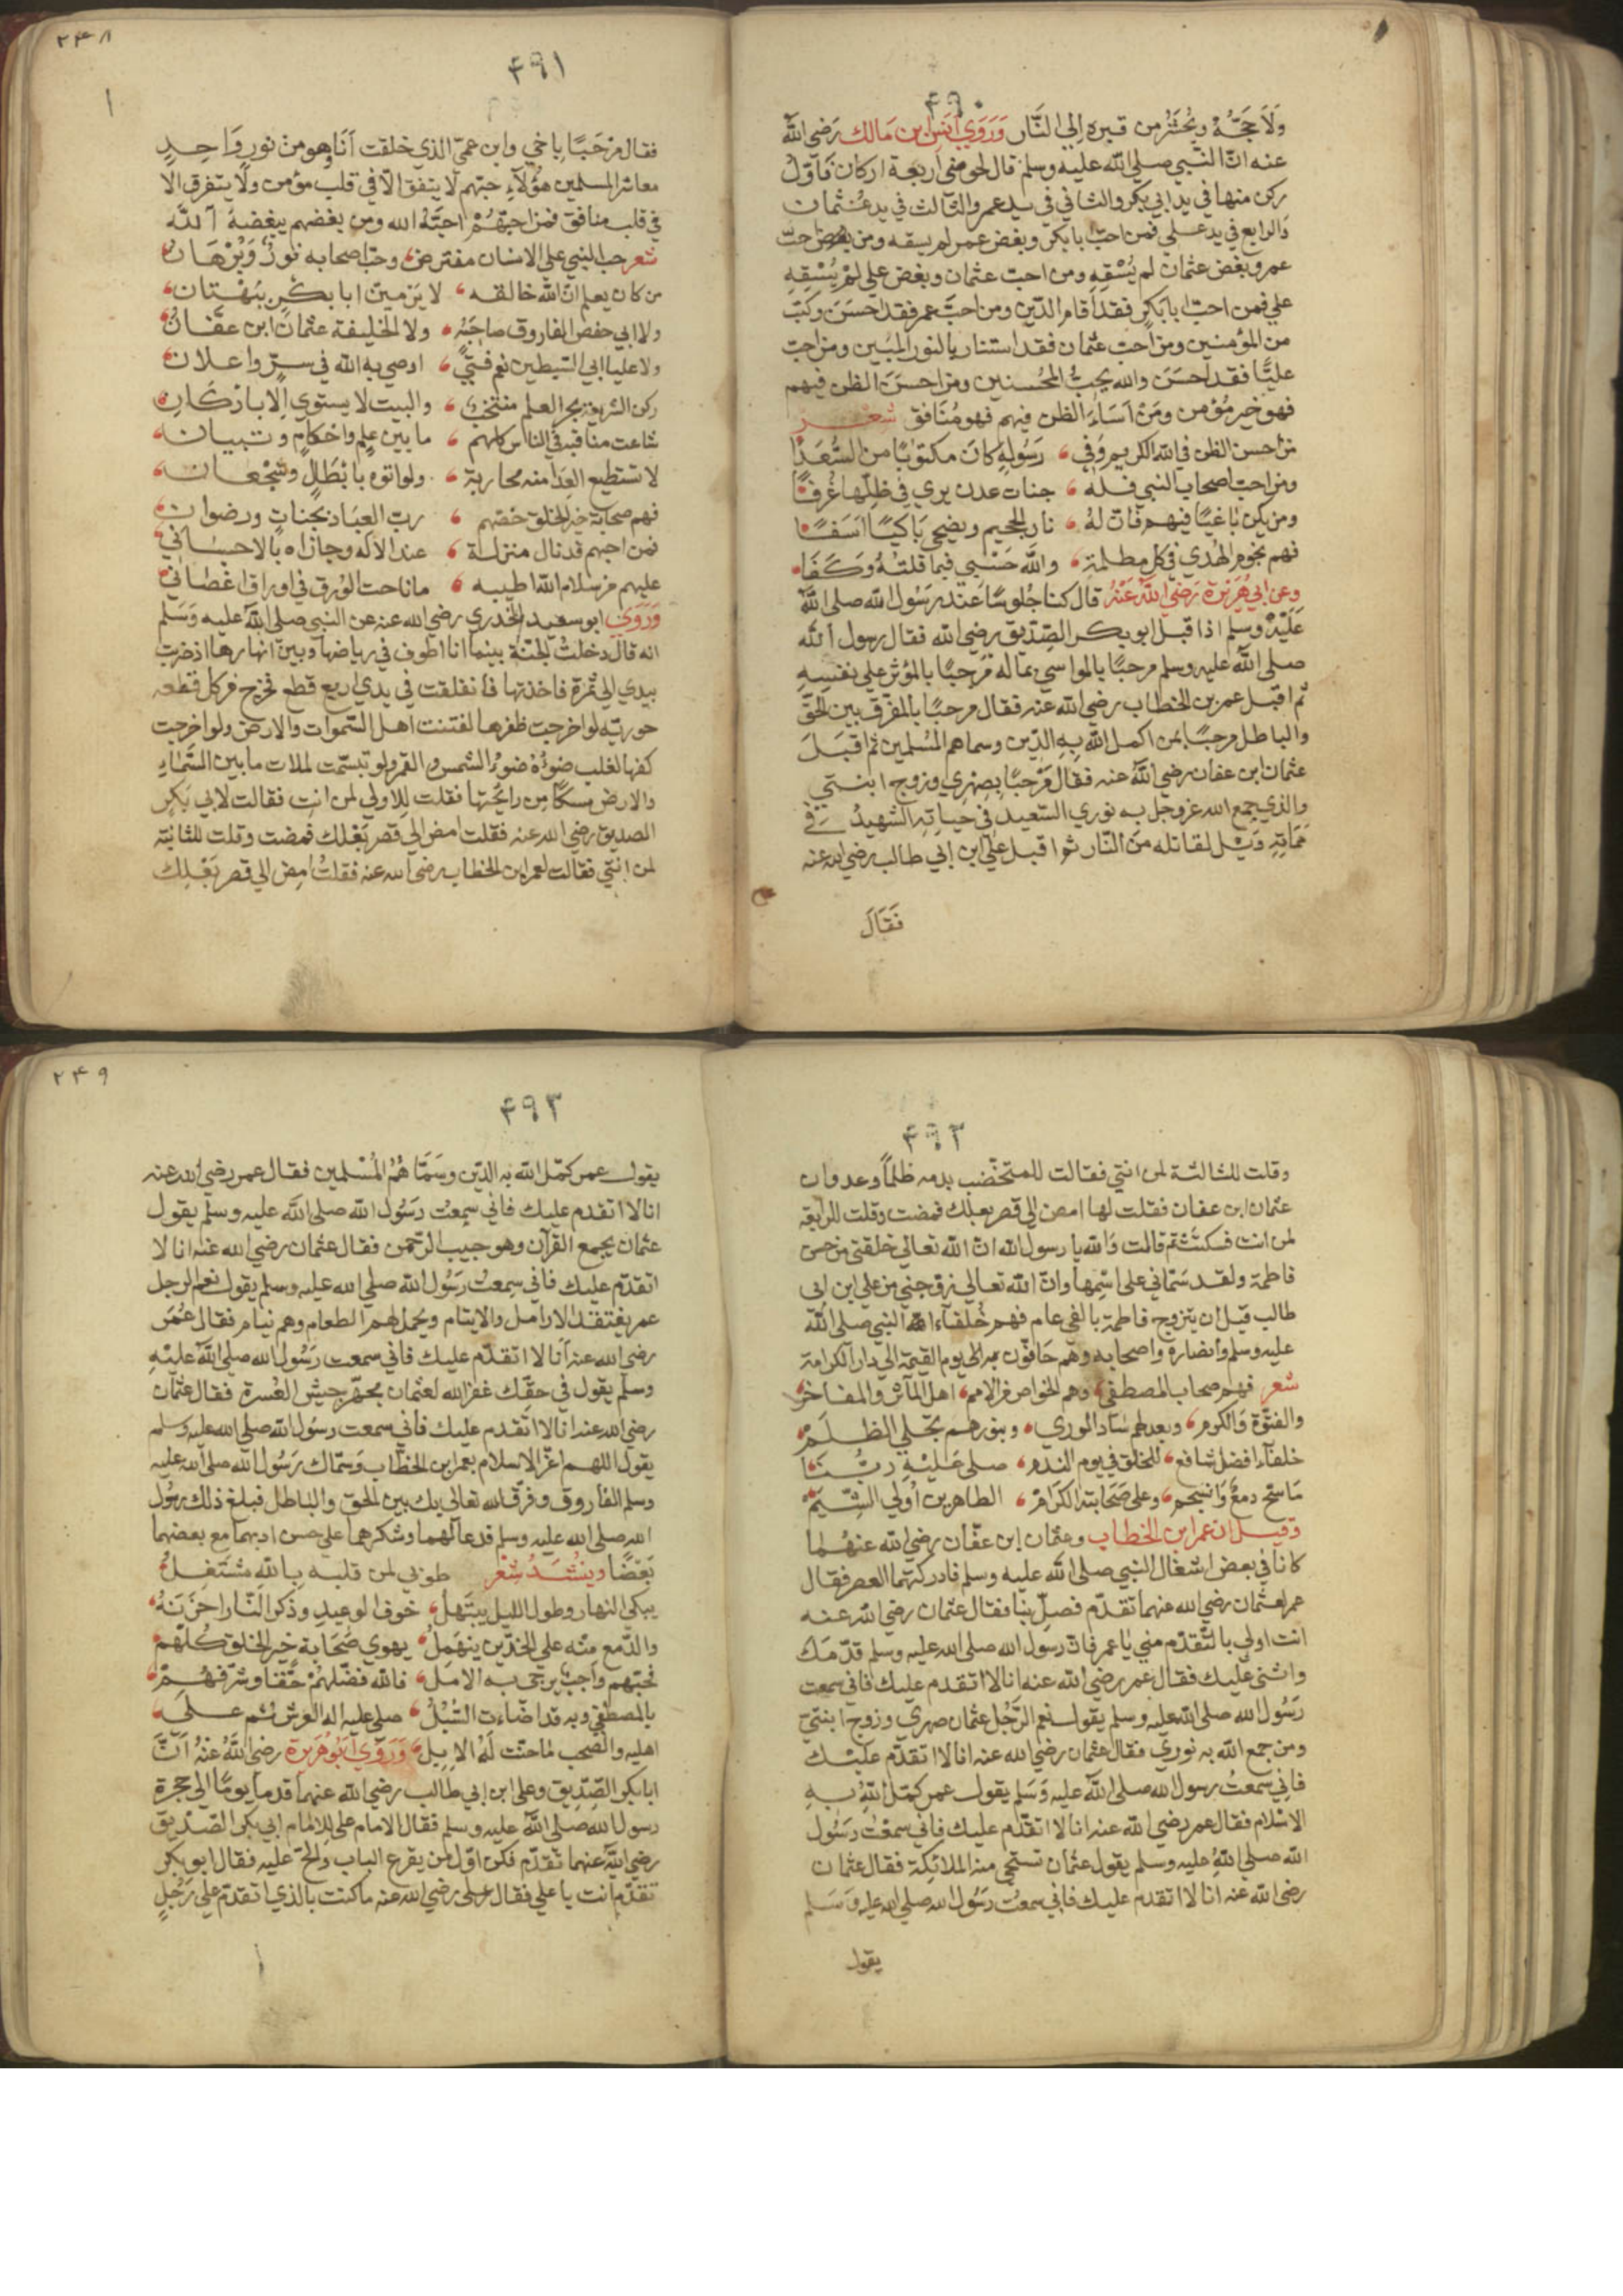 ٤٩٠
ولا حجة ويحشر من قبره الي النار وروي انس ابن مالك رضي الله
عنه ان النبي صلي الله عليه وسلم قال لحوضي اربعة اركان فاول
ركن منها في يد ابي بكر والثاني في يد عمر والثالث في يد عثمان
والرابع في يد علي فمن احب ابا بكر وبغض عمر لم يسقه ومن احب
عمر وبغض عثمان لم يسقه ومن احب عثمان وبغض علي لم يسقه
علي فمن احب ابا بكر فقد اقام الدين ومن احب عمر فقد احسن وكتب
من المؤمنين ومن احب عثمان فقد استنار بالنور المبين ومن احب
عليا فقد احسن والله يحب المحسنين ومن احسن الظن فيهم
فهو خير مؤمن ومن اساء الظن فيهم فهو منافق شعر
من احسن الظن في الله الكريم وفي رسوله كان مكتوبا من السعدا
ومن احب اصحاب النبي فله جنات عدن يري في ظلها غرفا
ومن يكن باغيا فيهم فان له نار الجحيم ويضحي باكيا اسفا
فهم نجوم الهدي في كل مظلمة والله حسبي فيما قلته وكفا
وعن ابي هريرة رضي الله عنه قال كنا جلوسا عند رسول الله صلي الله
عليه وسلم اذا قبل ابو بكر الصديق رضي الله فقال رسول الله
صلي الله عليه وسلم مرحبا بالمواسي بماله مرحبا بالمؤثر علي نفسه
ثم اقبل عمر بن الخطاب رضي الله عنه فقال مرحبا بالمفرق بين الحق
والباطل مرحبا بمن اكمل الله به الدين وسماهم المسلمين ثم اقبل
عثمان ابن عفان رضي الله عنه فقال مرحبا بصهري وزوج ابنتي
والذي جمع الله عز وجل به نوري السعيد في حياته الشهيد في
مماته ويل لقاتله من النار ثم اقبل علي ابن ابي طالب رضي الله عنه
فقال
٢٤٨
٤٩١
فقال مرحبا باخي وابن عمي الذي خلقت انا وهو من نور واحد
معاشر المسلمين هؤلاء حبهم لا يتفق الا في قلب مؤمن ولا يتفرق الا
في قلب منافق فمن احبهم احبه الله ومن يغضهم يبغضه الله
شعر حب النبي علي الانسان مفترض وحب اصحابه نور وبرهان
من كان يعلم ان الله خالقه لا يزمين ابا بكر ببهتان
ولا ابي حفص الفاروق صاحبه ولا الخليفة عثمان ابن عفان
ولا عليا ابي السبطين نعم فتي اوصي به الله في سر واعلان
ركن الشريعة بحر العلم منتخب والبيت لا يستوي الا باركان
شاعت مناقبه في الناس كلهم ما بين علم واحكام وتبيان
لا تستطيع العدا منه محاربة ولو اتوه بابطال وشجعان
فهم صحابة خير الخلق خصهم رب العباد بجنات ورضوان
فمن احبهم قد نال منزلة عند الاله وجازاه بالاحسان
عليهم من سلام الله اطيبه ما ناحت الورق في اوراق اغصان
وروي ابو سعيد الخدري رضي الله عنه عن النبي صلي الله عليه وسلم
انه قال دخلت الجنة بينما انا اطوف في رياضها وبين انهارها اذ ضربت
بيدي الي ثمرة فاخذتها فانفلقت في يدي اربع قطع فخرج من كل قطعه
حوريه لو اخرجت ظفرها لفتنت اهل السموات والارض ولو اخرجت
كفها لغلب ضوءه ضوء الشمس والقمر ولو تبسمت لملات ما بين السماء
والارض مسكا من رائحتها فقلت للاولي لمن انت فقالت لابي بكر
الصديق رضي الله عنه فقلت امض الي قصر بعلك فمضت وقلت للثانية
لمن انتي فقالت لعمر ابن الخطاب رضي الله عنه فقلت امض الي قصر بعلك
٤٩٢
وقلت للثالثة لمن انتي فقالت للمتخضب بدمه ظلما وعدوان
عثمان ابن عفان فقلت لها امض الي قصر بعلك فمضت وقلت للرابعة
لمن انت فسكتت ثم قالت والله يا رسول الله ان الله تعالي خلقني من حسن
فاطمة ولقد سماني علي اسمها وان الله تعالي زوجني من علي ابن ابي
طالب قبل ان يتزوج فاطمة بالفي عام فهم خلفاء النبي صلي الله
عليه وسلم وانصاره واصحابه وهم حافون به الي يوم القيمة الي دار الكرامة
شعر فهم صحاب المصطفي وهم الخواص من الامم اهل المآثر والمفاخر
والفتوة والكرم وبعدلهم ساد الوري وبنورهم تجلي الظلم
خلفاء افضل شافع للخلق في يوم الندم صلي عليه ربنا
ما سح دمع وانسجم وعلي صحابته الكرام الطاهرين اولي الشيم
وقيل ان عمر ابن الخطاب وعثمان ابن عفان رضي الله عنهما
كانا في بعض اشغال النبي صلي الله عليه وسلم فادركتهما العصر فقال
عمر لعثمان رضي الله عنهما تقدم فصل بنا فقال عثمان رضي الله عنه
انت اولي بالتقدم مني يا عمر فان رسول الله صلي الله عليه وسلم قدمك
واثني عليك فقال عمر رضي الله عنه انا لا اتقدم عليك فاني سمعت
رسول الله صلي الله عليه وسلم يقول نعم الرجل عثمان صهري وزوج ابنتي
ومن جمع الله به نوري فقال عثمان رضي الله عنه انا لا اتقدم عليك
فاني سمعت رسول الله صلي الله عليه وسلم يقول عمر كمل الله به
الاسلام فقال عمر رضي الله عنه انا لا اتقدم عليك فاني سمعت رسول
الله صلي الله عليه وسلم يقول عثمان تستحي منه الملائكة فقال عثمان
رضي الله عنه انا لا اتقدم عليك فاني سمعت رسول الله صلي الله عليه وسلم
يقول
٢٤٩
٤٩٣
يقول عمر كمل الله به الدين وسماهم المسلمين فقال عمر رضي الله عنه
انا لا اتقدم عليك فاني سمعت رسول الله صلي الله عليه وسلم يقول
عثمان يجمع القرآن وهو حبيب الرحمن فقال عثمان رضي الله عنه انا لا
اتقدم عليك فاني سمعت رسول الله صلي الله عليه وسلم يقول نعم الرجل
عمر يفتقد الارامل والايتام ويحمل لهم الطعام وهم نيام فقال عمر
رضي الله عنه انا لا اتقدم عليك فاني سمعت رسول الله صلي الله عليه
وسلم يقول في حقك غفر الله لعثمان مجهز جيش العسرة فقال عثمان
رضي الله عنه انا لا اتقدم عليك فاني سمعت رسول الله صلي الله عليه وسلم
يقول اللهم اعز الاسلام بعمر ابن الخطاب وسماك رسول الله صلي الله عليه
وسلم الفاروق وفرق الله تعالي بك بين الحق والباطل فبلغ ذلك رسول
الله صلي الله عليه وسلم فدعا لهما وشكرهما علي حسن ادبهما مع بعضهما
بعضا وينشد شعر طوبي لمن قلبه بالله مشتغل
يبكي النهار وطول الليل يبتهل خوف الوعيد وذكر النار احزنه
والدمع منه علي الخدين ينهمل يهوي صحابة خير الخلق كلهم
فحبهم واجب يرجي به الامل فالله فضلهم حقا وشرفهم
بالمصطفي وبه قد اضاءت السبل صلي عليه اله العرش ثم علي
اهليه والصحب ما حنت له الابل وروي ابو هريرة رضي الله عنه ان
ابا بكر الصديق وعلي ابن ابي طالب رضي الله عنهما قدما يوما الي حجرة
رسول الله صلي الله عليه وسلم فقال الامام علي للامام ابي بكر الصديق
رضي الله عنهما تقدم فكن اول من يقرع الباب والح عليه فقال ابو بكر
تقدم انت يا علي فقال علي رضي الله عنه ما كنت بالذي اتقدم علي رجل